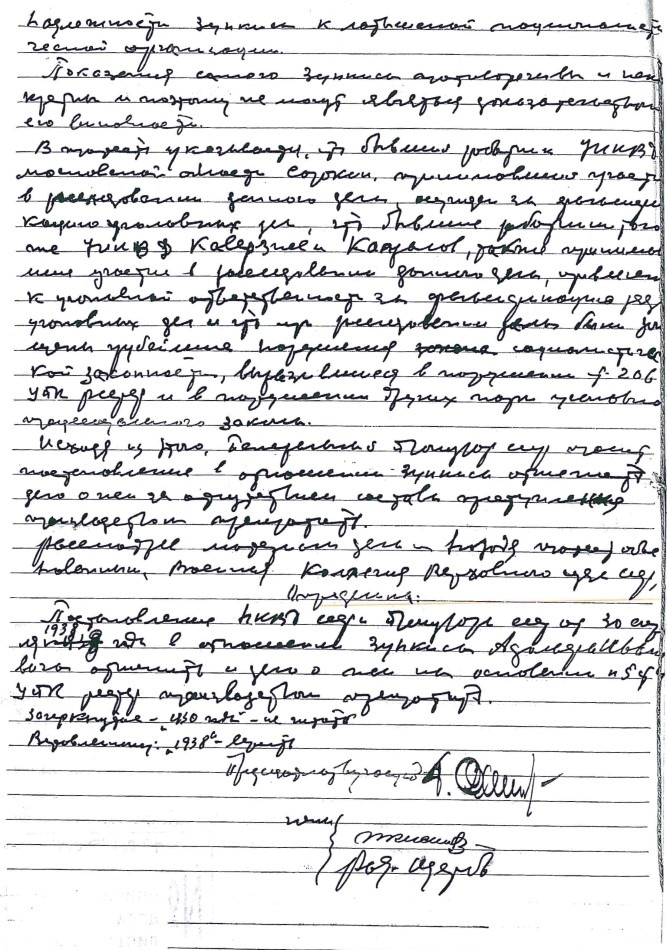 надлежности Зункиса к латышской националисти
ческой организации.
Показания самого Зункиса противоречивы и некон
кретны и поэтому не могут являться доказательством
его виновности.
В протесте указывается, что бывший работник УНКВД
московской области Сорокин, принимавший участие
в расследовании данного дела, осужден за фальсифи
кацию уголовных дел, что бывшие работники того
же УНКВД Каверзнев и также принимав
шие участие в расследовании данного дела, привлечен
к уголовной ответственности за фальсификацию ряда
уголовных дел и что при расследовании дела были до
щены грубейшие нарушения социалистичес
кой законности, выразившиеся в нарушении ст. 206
УПК РСФСР и в нарушении других норм уголовно
процессуального закона.
Исходя из этого, Генеральный Прокурор СССР просит
постановление в отношении Зункиса отменить,
дело о нем за отсутствием состава преступления
производством прекратить.
Рассмотрев материалы дела и находя протест обос
нованным, Военная Коллегия Верховного суда СССР,
Определила:
Постановление НКВД СССР и Прокурора СССР от 30
1938 года в отношении Зункиса
вича отменить и дело о нем на основании п 5 ст 4
УПК РСФСР производством прекратить.
Зачеркнутое - - не читать
Вставленному: "1938" - верить
Председательствующий
члены